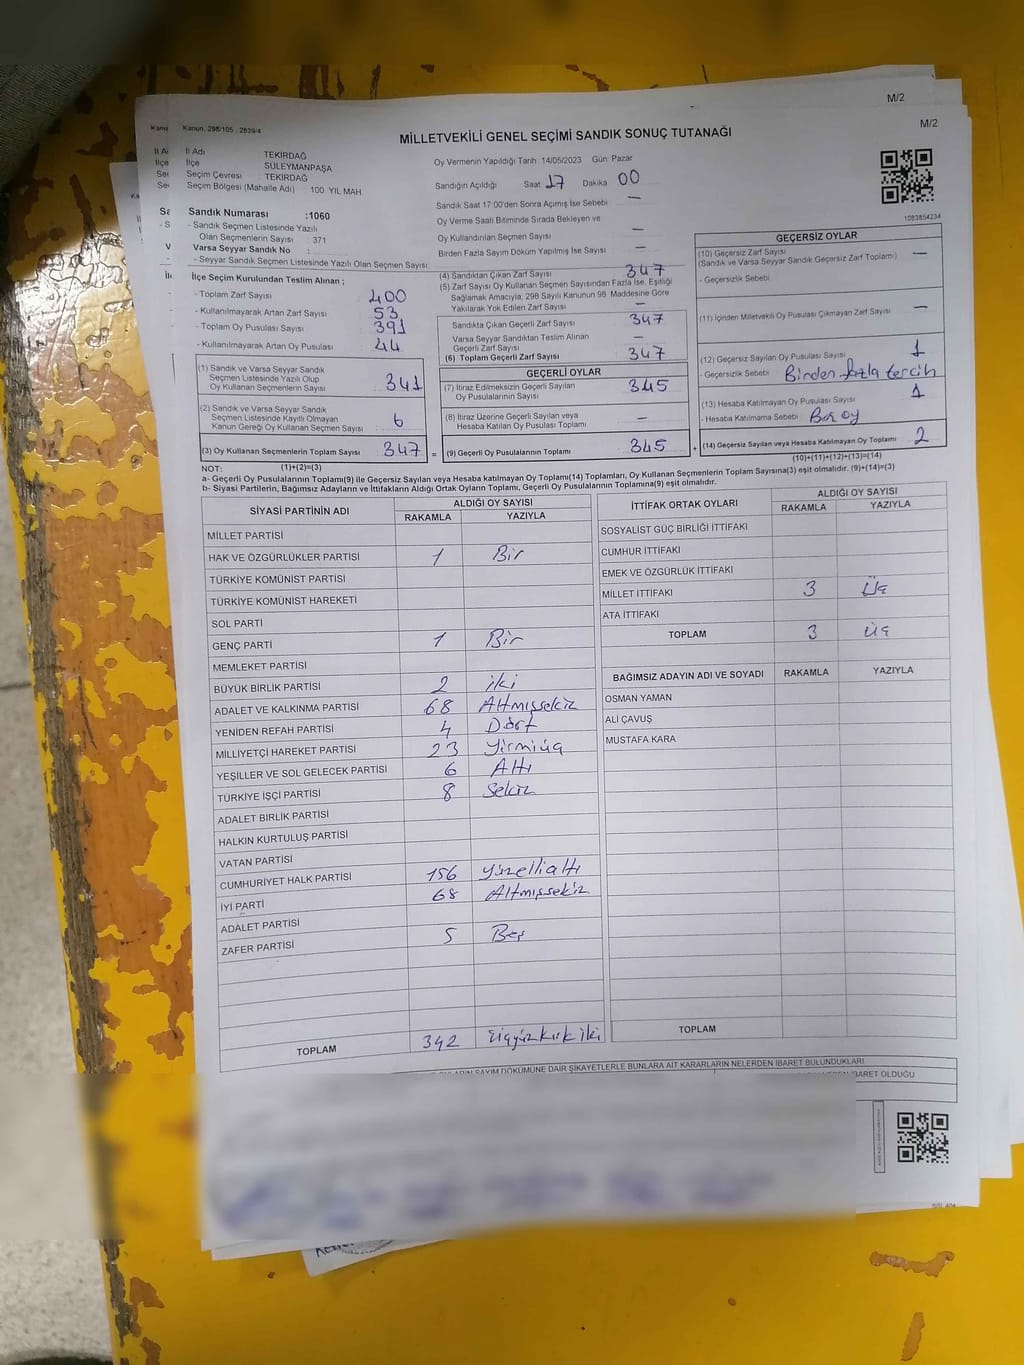 M/2
M/2
Kanun. 298/105 , 2839/4
MİLLETVEKİLİ GENEL SEÇİMİ SANDIK SONUÇ TUTANAĞI
İl Adı TEKİRDAĞ
İlçe SÜLEYMANPAŞA
Seçim Çevresi TEKİRDAĞ
Seçim Bölgesi (Mahalle Adı) : 100. YIL MAH
Sandık Numarası :1060
- Sandık Seçmen Listesinde Yazılı
Olan Seçmenlerin Sayısı : 371
Varsa Seyyar Sandık No :
- Seyyar Sandık Seçmen Listesinde Yazılı Olan Seçmen Sayısı:
Oy Vermenin Yapıldığı Tarih 14/05/2023 Gün Pazar
Sandığın Açıldığı Saat 17 Dakika 00
Sandık Saat 17:00'den Sonra Açımış İse Sebebi —
Oy Verme Saati Bitiminde Sırada Bekleyen ve
Oy Kullandırılan Seçmen Sayısı —
Birden Fazla Sayım Döküm Yapılmış İse Sayısı —
1083854234
İlçe Seçim Kurulundan Teslim Alınan ;
- Toplam Zarf Sayısı 400
- Kullanılmayarak Artan Zarf Sayısı 53
- Toplam Oy Pusulası Sayısı 391
- Kullanılmayarak Artan Oy Pusulası 44
(1) Sandık ve Varsa Seyyar Sandık
Seçmen Listesinde Yazılı Olup
Oy Kullanan Seçmenlerin Sayısı 341
(2) Sandık ve Varsa Seyyar Sandık
Seçmen Listesinde Kayıtlı Olmayan
Kanun Gereği Oy Kullanan Seçmen Sayısı 6
(3) Oy Kullanan Seçmenlerin Toplam Sayısı 347
(4) Sandıktan Çıkan Zarf Sayısı 347
(5) Zarf Sayısı Oy Kullanan Seçmen Sayısından Fazla İse, Eşitliği
Sağlamak Amacıyla, 298 Sayılı Kanunun 98. Maddesine Göre
Yakılarak Yok Edilen Zarf Sayısı —
Sandıkta Çıkan Geçerli Zarf Sayısı 347
Varsa Seyyar Sandıktan Teslim Alınan
Geçerli Zarf Sayısı —
(6) Toplam Geçerli Zarf Sayısı 347
GEÇERLİ OYLAR
(7) İtiraz Edilmeksizin Geçerli Sayılan
Oy Pusulalarının Sayısı 345
(8) İtiraz Üzerine Geçerli Sayılan veya
Hesaba Katılan Oy Pusulası Toplamı —
= (9) Geçerli Oy Pusulalarının Toplamı 345 +
GEÇERSİZ OYLAR
(10) Geçersiz Zarf Sayısı
(Sandık ve Varsa Seyyar Sandık Geçersiz Zarf Toplamı) —
- Geçersizlik Sebebi
(11) İçinden Milletvekili Oy Pusulası Çıkmayan Zarf Sayısı —
(12) Geçersiz Sayılan Oy Pusulası Sayısı 1
- Geçersizlik Sebebi Birden fazla tercih
(13) Hesaba Katılmayan Oy Pusulası Sayısı 1
- Hesaba Katılmama Sebebi Boş oy
(14) Geçersiz Sayılan veya Hesaba Katılmayan Oy Toplamı 2
(10)+(11)+(12)+(13)=(14)
NOT: (1)+(2)=(3)
a- Geçerli Oy Pusulalarının Toplamı(9) ile Geçersiz Sayılan veya Hesaba katılmayan Oy Toplamı(14) Toplamları, Oy Kullanan Seçmenlerin Toplam Sayısına(3) eşit olmalıdır. (9)+(14)=(3)
b- Siyasi Partilerin, Bağımsız Adayların ve İttifakların Aldığı Ortak Oyların Toplamı, Geçerli Oy Pusulalarının Toplamına(9) eşit olmalıdır.
SİYASİ PARTİNİN ADI ALDIĞI OY SAYISI
RAKAMLA YAZIYLA
MİLLET PARTİSİ
HAK VE ÖZGÜRLÜKLER PARTİSİ 1 Bir
TÜRKİYE KOMÜNİST PARTİSİ
TÜRKİYE KOMÜNİST HAREKETİ
SOL PARTİ
GENÇ PARTİ 1 Bir
MEMLEKET PARTİSİ
BÜYÜK BİRLİK PARTİSİ 2 iki
ADALET VE KALKINMA PARTİSİ 68 Altmışsekiz
YENİDEN REFAH PARTİSİ 4 Dört
MİLLİYETÇİ HAREKET PARTİSİ 23 Yirmiüç
YEŞİLLER VE SOL GELECEK PARTİSİ 6 Altı
TÜRKİYE İŞÇİ PARTİSİ 8 Sekiz
ADALET BİRLİK PARTİSİ
HALKIN KURTULUŞ PARTİSİ
VATAN PARTİSİ
CUMHURİYET HALK PARTİSİ 156 Yüzellialtı
İYİ PARTİ 68 Altmışsekiz
ADALET PARTİSİ
ZAFER PARTİSİ 5 Beş
TOPLAM 342 Üçyüzkırkiki
İTTİFAK ORTAK OYLARI ALDIĞI OY SAYISI
RAKAMLA YAZIYLA
SOSYALİST GÜÇ BİRLİĞİ İTTİFAKI
CUMHUR İTTİFAKI
EMEK VE ÖZGÜRLÜK İTTİFAKI
MİLLET İTTİFAKI 3 Üç
ATA İTTİFAKI
TOPLAM 3 üç
BAĞIMSIZ ADAYIN ADI VE SOYADI RAKAMLA YAZIYLA
OSMAN YAMAN
ALİ ÇAVUŞ
MUSTAFA KARA
TOPLAM
SAYIM DÖKÜMÜNE DAİR ŞİKAYETLERLE BUNLARA AİT KARARLARIN NELERDEN İBARET BULUNDUKLARI
İBARET OLDUĞU